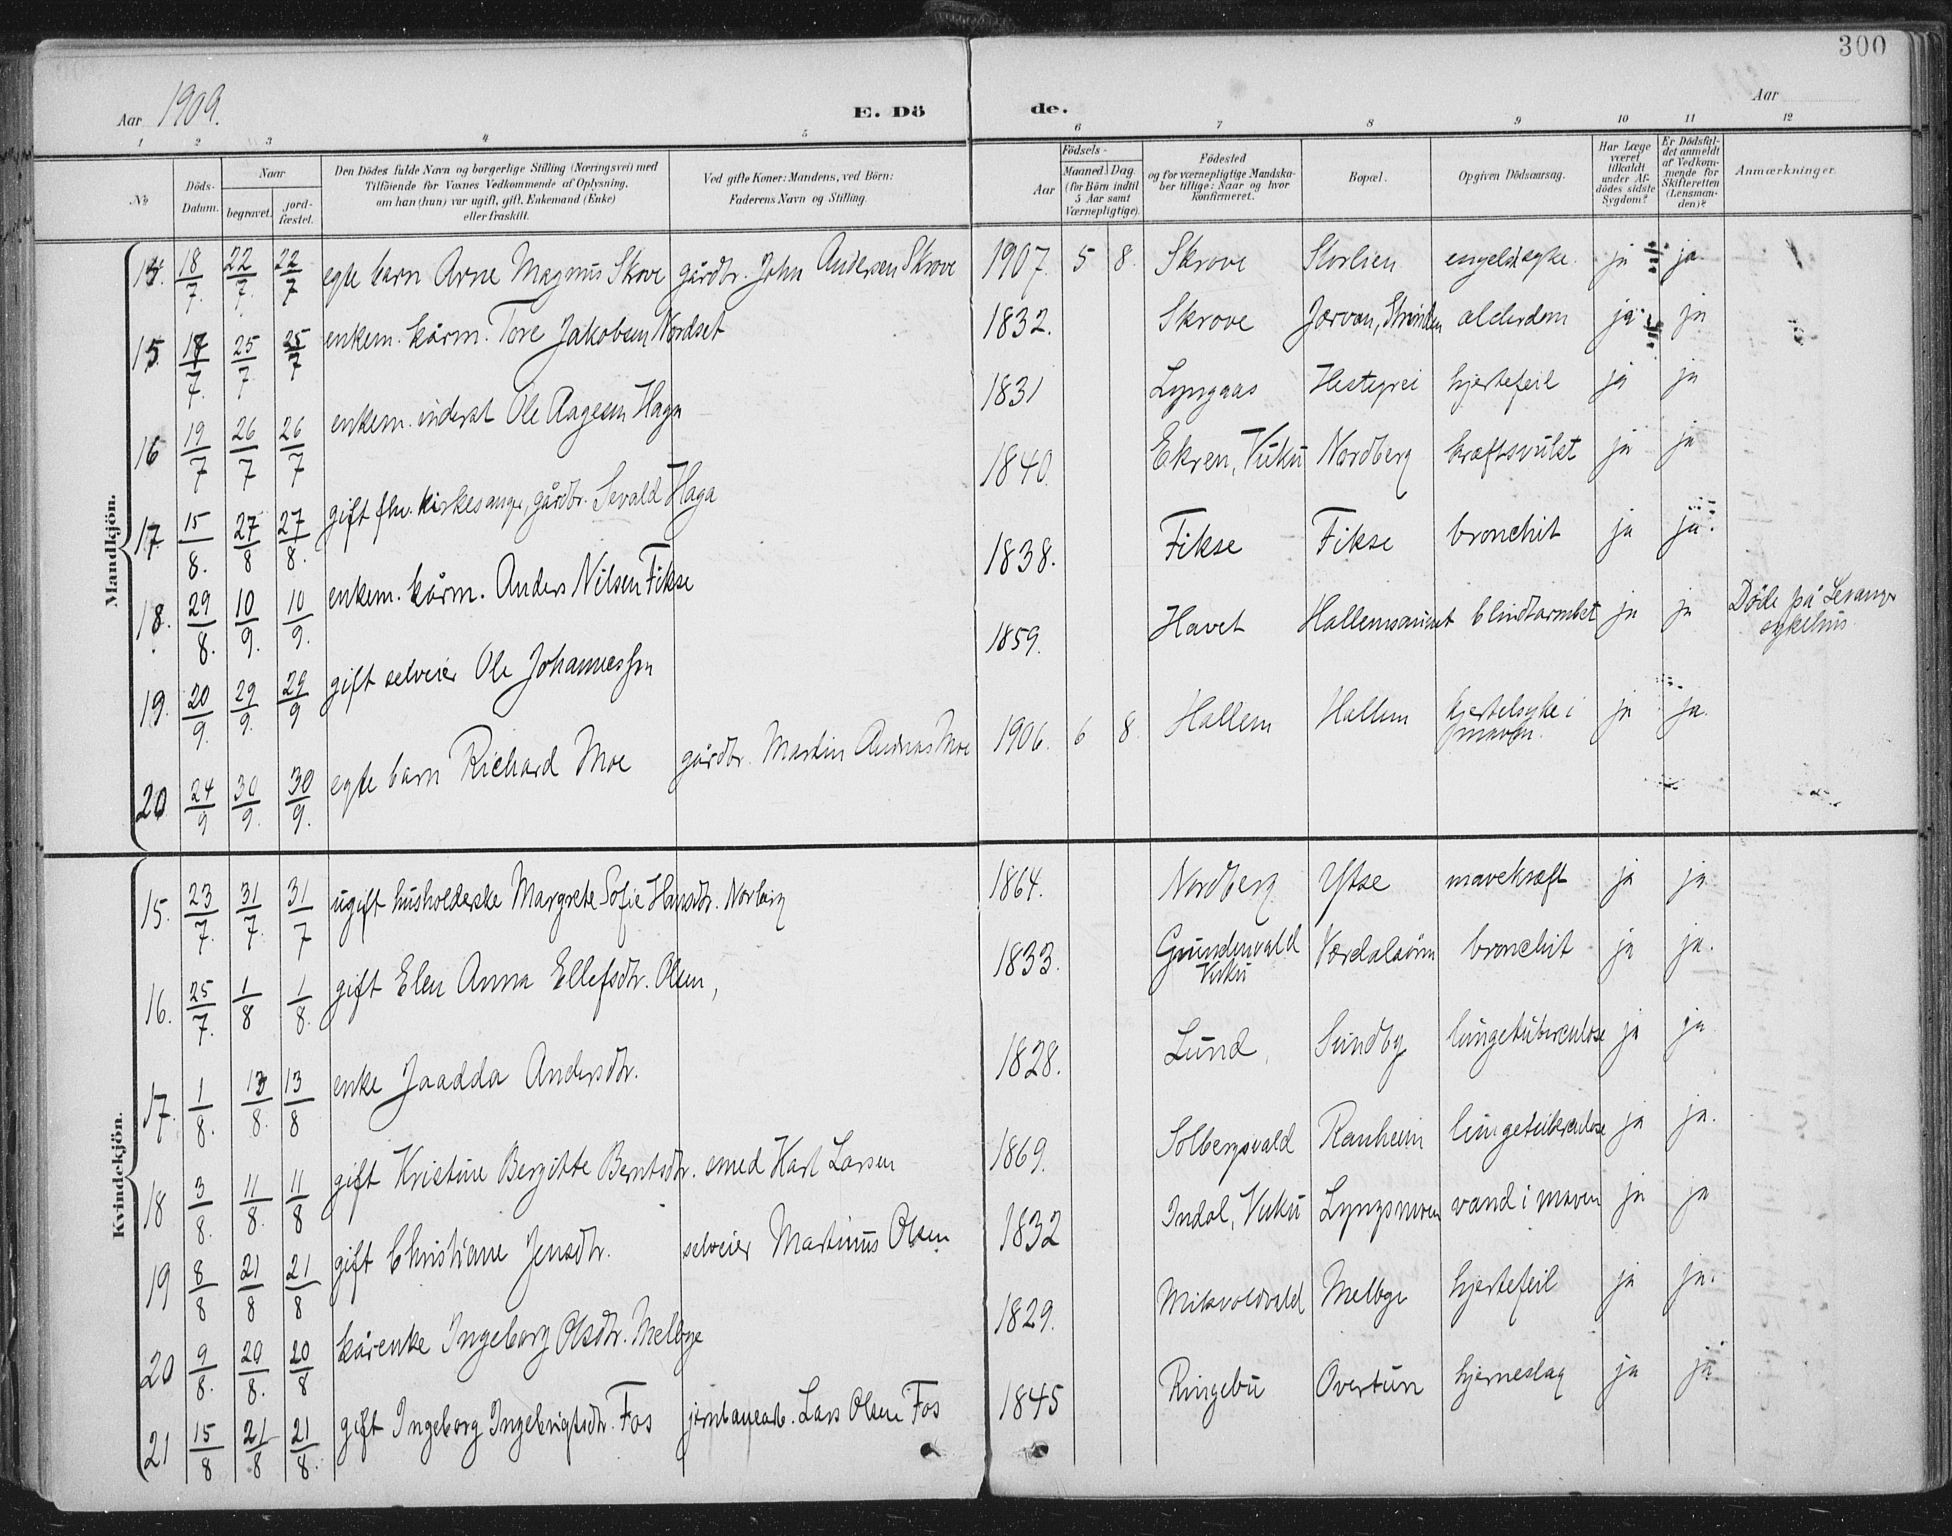 300
Aar 1909.
E. Dö de.
Aar
1 2 3 4 5 6 7 8 9 10 11 12
No
Döds-Datum.
Naar
begravet.
jord-fæstet.
Den Dödes fulde Navn og borgerlige Stilling (Næringsvei) med
Tilföiende for Voxnes Vedkommende af Oplysning,
om han (hun) var ugift, gift, Enkemand (Enke)
eller fraskilt.
Ved gifte Koner: Mandens, ved Börn:
Faderens Navn og Stilling.
Födsels-
Aar
Maaned Dag
(for Börn indtil
5 Aar samt
Værnepligtige).
Födested
og for værnepligtige Mandska-
ber tillige: Naar og hvor
konfirmeret.
Bopæl.
Opgiven Dödsaarsag.
Har Læge
været
tilkaldt
under Af-
dödes sidste
Sygdom?
Er Dödsfal-
det anmeldt
af Vedkom-
mende for
Skifteretten
(Lensman-
den)?
Anmærkninger.
Mandkjön.
14. 18/7. 22/7. 22/7 egte barn Arne Magnus Skrove gårdbr. John Andersen Skrove 1907. 5 8. Skrove Storlien engelsk syke. ja ja
15. 17/7. 25/7 25/7 enkem. kårm. Tore Jakobsen Nordset 1832. Skrove Jarvan, Strinden alderdom ja ja
16 19/7 26/7 26/7 enkem. inderst Ole Aagesen Haga 1831 Lyngaas Hestegrei hjertefeil ja ja
17. 15/8. 27/8 27/8. gift fhv. kirkesanger, gårdbr. Sevald Haga 1840. Ekren, Vuku Nordberg kræftsvulst ja ja
18. 29/8. 10/9. 10/9. enkem. kårm. Anders Nilsen Fikse 1838. Fikse Fikse bronchit ja ja.
19. 20/9. 29/9. 29/9 gift selveier Ole Johannessen 1859. Havet Hallemsaunet blindtarmbet ja ja Döde på Levanger
sykehus.
20 24/9 30/9. 30/9. egte barn Richard Moe gårdbr. Martin Andreas Moe 1906. 6 8. Hallem Hallem kjertelsyke i
maven. ja ja.
Kvindekjön.
15. 23/7. 31/7. 31/7 ugift husholderske Margrete Sofie Hansdtr. Norberg 1864. Nordberg Ytse mavekræft ja ja
16. 25/7. 1/8 1/8. gift Elen Anna Ellefsdtr. Olsen, 1833. Grundenvald
Vuku Værdalsören bronchit ja ja.
17. 1/8. 13/8. 13/8 enke Jaadda Andersdtr. 1828. Lund, Sundby lungetuberculose ja ja
18 3/8. 11/8. 11/8 gift Kristine Bergitte Berntsdtr. smed Karl Larsen 1869. Solbergsvald Ranheim lungetuberculose ja ja.
19 8/8 21/8 21/8 gift Christiane Jensdtr. selveier Martinus Olsen 1832 Indal, Vuku Lyngsmoen vand i maven ja ja
20 9/8. 20/8. 20/8 kårenke Ingeborg Olsdtr. Melbye 1829. Mikvoldvald Melbye hjertefeil ja ja.
21 15/8 21/8 21/8. gift Ingeborg Ingebrigtsdtr. Fos jernbanearb. Lars Olsen Fos 1845 Ringebu Overtun hjerneslag ja ja